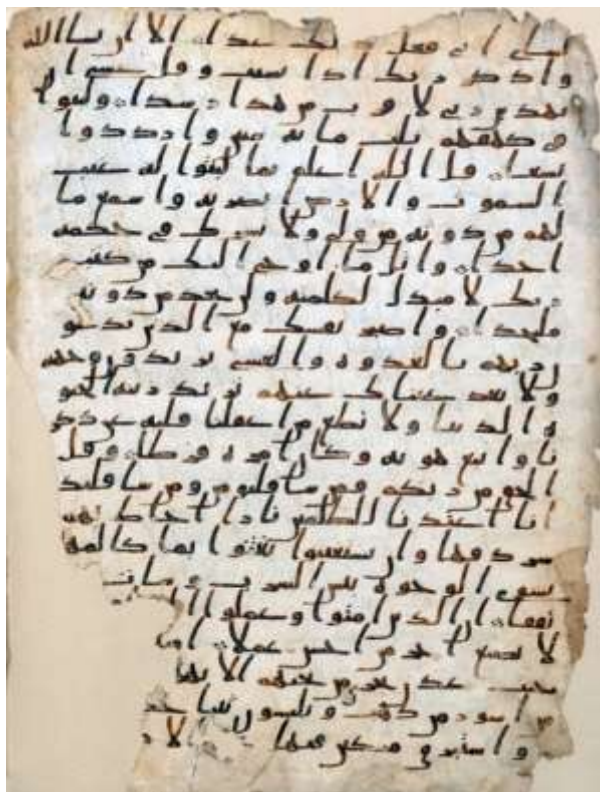 لشاى انى فعل ذلك غدا الا ان يشا الله
واذكر ربك اذا نسيت وقل عسى ان
يهدين ربى لاقرب من هذا رشدا ولبثوا
فى كهفهم ثلث مائه سنين وازددوا
تسعا قل الله اعلم بما لبثوا له غيب
السموت والارض ابصر به واسمع ما
لهم من دونه من ولى ولا يشرك فى حكمه
احدا واتل ما اوحى اليك من كتب
ربك لا مبدل لكلمته ولن تجد من دونه
ملتحدا واصبر نفسك مع الذين يدعو
ن ربهم بالغدوه والعشى يريدون وجهه
ولا تعد عيناك عنهم تريد زينه الحيو
ه الدنيا ولا تطع من اغفلنا قلبه عن ذكر
نا واتبع هويه وكان امره فرطا وقل
الحق من ربكم فمن شا فليومن ومن شا فليكفر
انا اعتدنا للظلمين نارا احاط بهم
سردقها وان يستغيثوا يغثوا بما كالمهل
يشوى الوجوه بئس الشرب وسات
ان الذين امنوا وعملوا
لا نضيع اجر من احسن عملا
جنت عدن تجرى من تحتهم الانهر
من اسور من ذهب ويلبسون ثيابا
واستبرق متكين فيها